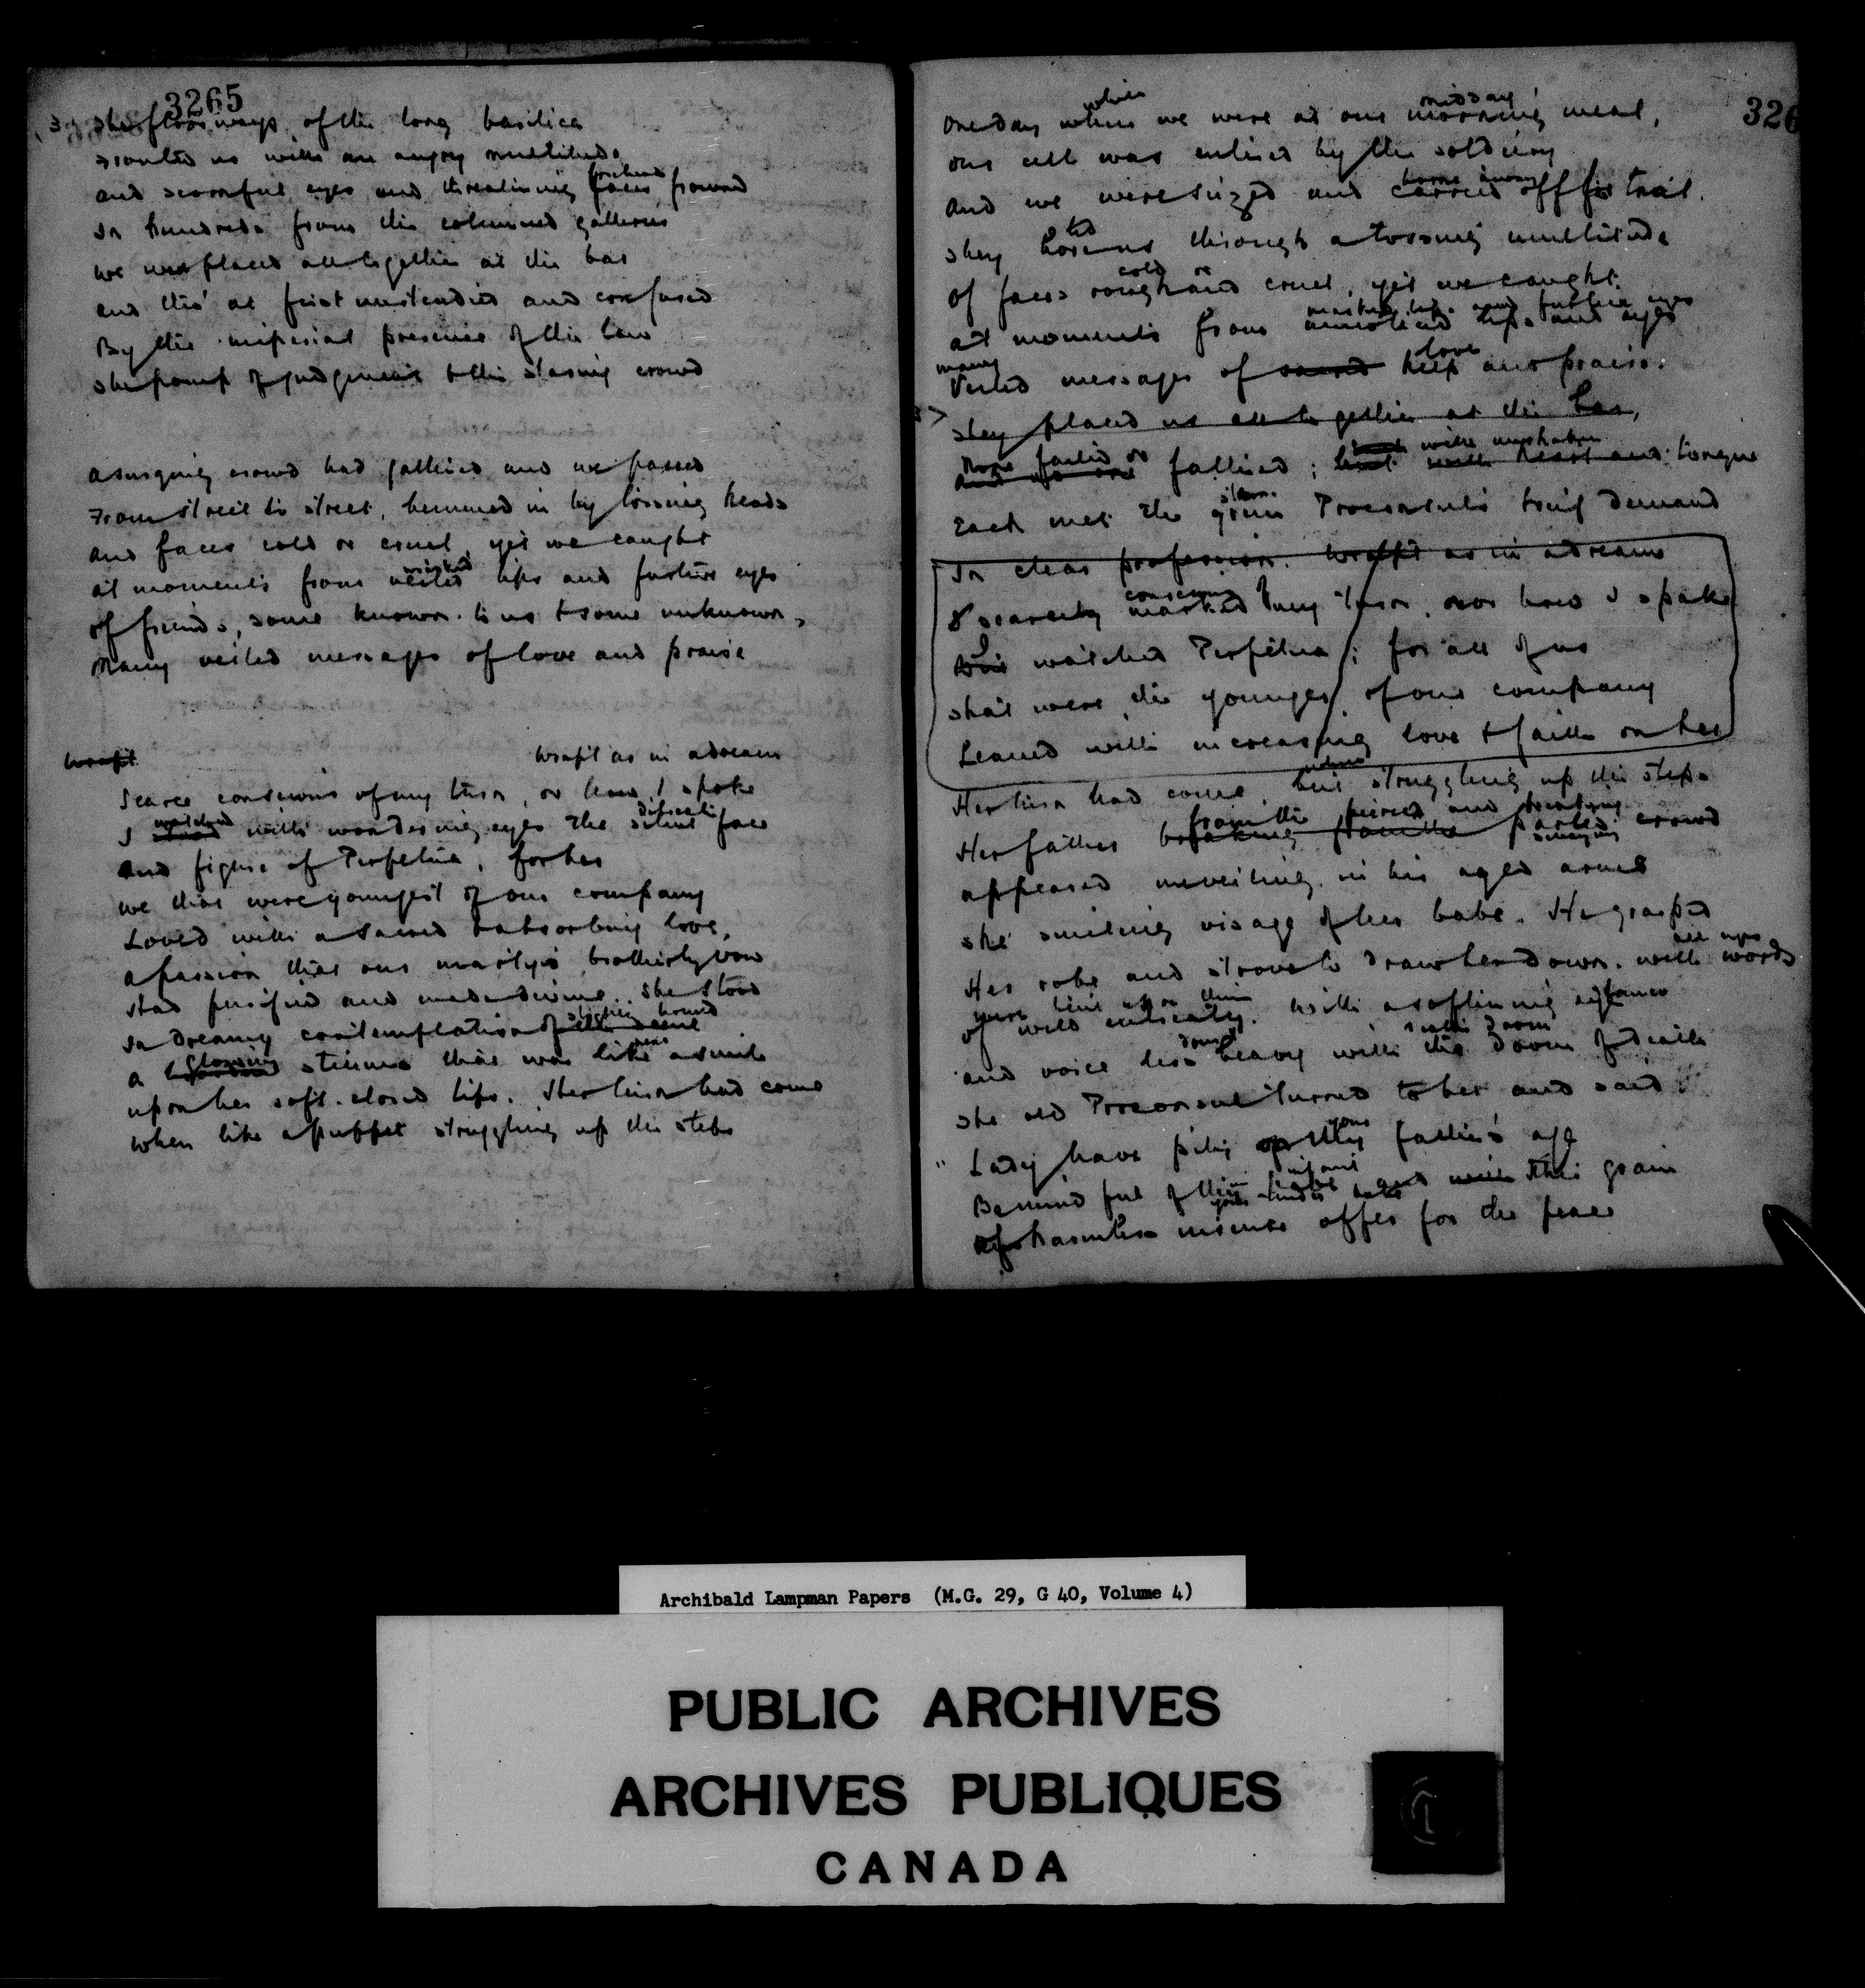 3265
The floorways of the long basilica
us with an angry multitude
and scornful eyes and threatening faces forward
In hundreds from the columned galleries
we were placed all together at the bar
and tho' at first unsteadied and confused
By the imperial presence of the law
The pomp of judgement & the staring crowd
a surging crowd had gathered and we passed
From street to street, hemmed in by tossing heads
and faces cold or cruel, yet we caught
masked
at moments from veiled lips and furtive eyes
of friends, some known to us & some unknown,
Many veiled messages of love and praise
wrapt
wrapt as in a dream
Scarce conscious of my turn, or how I spoke
watched delicate
I with wondering eyes the silent face
And figure of Perpetua, for her
we that were youngest of our company
Loved with a sacred & absorbing love,
a passion that our martyr's brotherly vow
Had purified and made divine. She stood
In dreamy contemplation of the scene
near
a glowing stillness that was like a smile
upon her soft-closed lips. Her turn had come
When like a puppet struggling up the steps
326
while midday
One day when we were at our morning meal,
our cell was entered by the soldiery
borne away
And we were seized and carried off for trial.
led
They bore us through a tossing multitude
cold or
of faces rough and cruel, yet we caught
masked lips and furtive eyes
at moments from lips and eyes
many love
Veiled messages of sacred help and praise.
They placed us all together at the bar,
None failed or with unshaken
and no one faltered; but with heart and tongue
stern
Each met the grim Proconsul's brief demand
In clear profession. Wrapt as in a dream
conscious of
I scarcely marked my turn, nor how I spake
I
But watched Perpetua; for all of us
That were the younger of our company
Leaned with increasing love & faith on her
when
Her turn had come, but struggling up the steps
from the pierced and
Her father breaking from the parted crowd
swaying
appeared unveiling in his aged arms
The smiling visage of her babe. He grasped
Her robe and strove to draw her down. with words
all eyes
were bent upon him
of wild entreaty. with a softening
and voice less heavy with the doom of death
The old Proconsul turned to her and said
your
"Lady have pity on thy father's age
infant
Be mindful of thy tender babe and this grain
Of harmless incense offer for the peace
Archibald Lampman Papers (M.G. 29, G 40, Volume 4)
PUBLIC ARCHIVES
ARCHIVES PUBLIQUES
CANADA